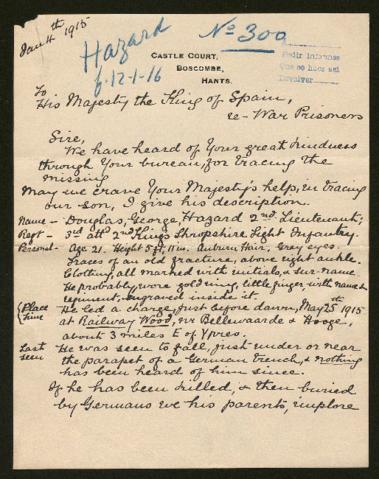 Jan 4th 1915
Hazard
6-12-1-16
No 300
CASTLE COURT,
BOSCOMBE,
HANTS.
Pedir informes
Que se hace así
To
His Majesty the King of Spain,
re - War Prisoners
Sire,
We have heard of Your great kindness
through Your bureau, for tracing the
missing
May we crave Your Majesty's help, in tracing
our son, I give his description.
Name - Douglas, George, Hazard 2nd Lieutenant,
Regt - 3rd att 2nd Kings Shropshire Light Infantry.
Personal - Age 21. Height 5 ft, 11 in. Auburn Hair, Grey eyes.
Traces of an old fracture, above right ankle.
Clothing all marked with initials, & sur-name
He probably wore gold ring, little finger, with name &
regiment, engraved inside it.
(Place Time He led a charge, just before dawn, May 25th 1915
at Railway Wood, nr Bellewaarde & Hooge,
about 3 miles E of Ypres.
Last seen He was seen to fall, just under or near
the parapet of a German trench, & nothing
has been heard of him since.
If he has been killed, & then buried
by Germans we his parents, implore